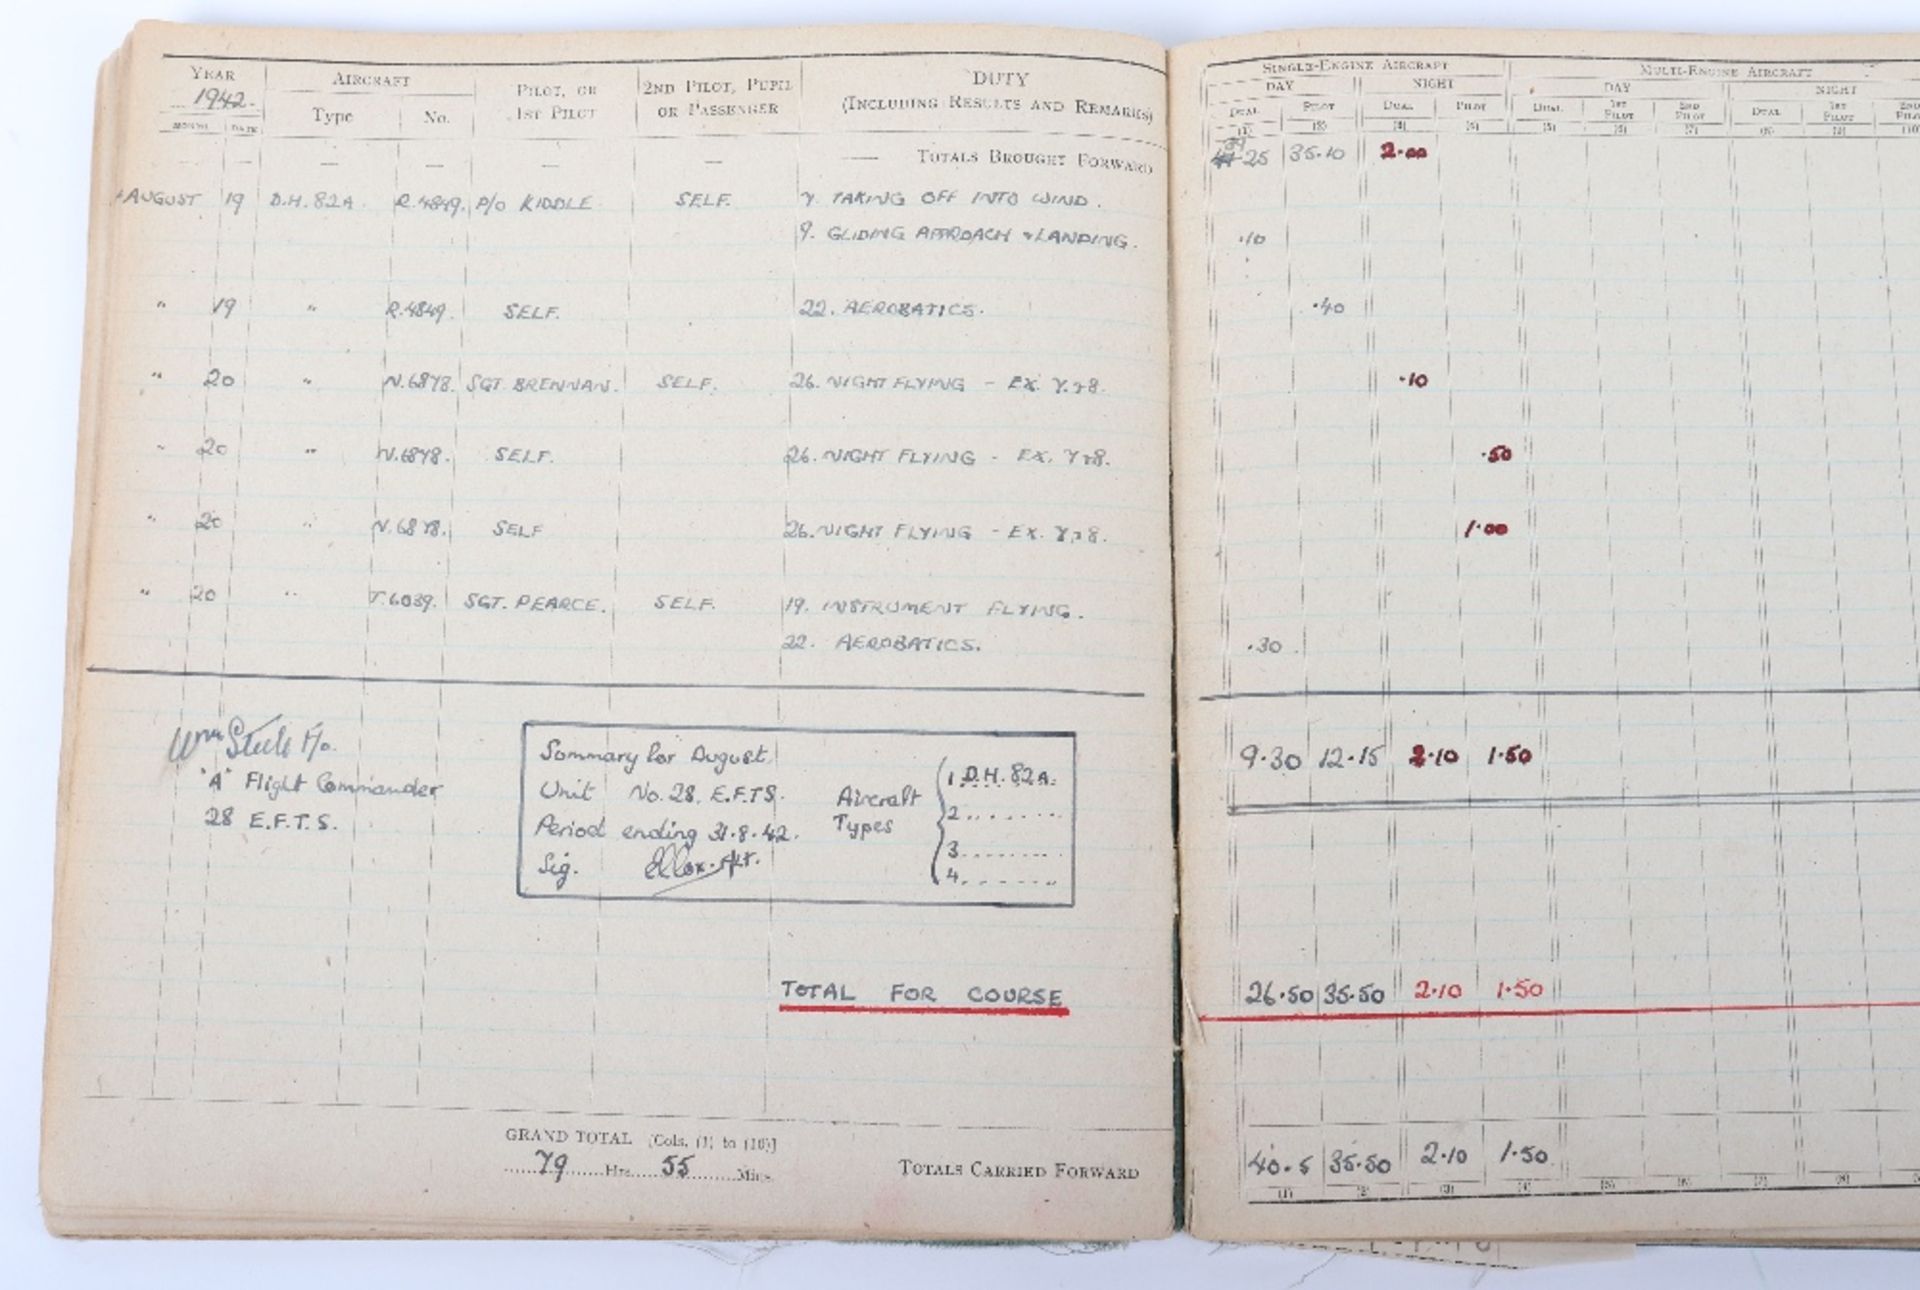 YEAR AIRCRAFT PILOT, OR 1ST PILOT 2ND PILOT, PUPIL OR PASSENGER DUTY (INCLUDING RESULTS AND REMARKS)
1942. Type No.
MONTH DATE
SINGLE-ENGINE AIRCRAFT MULTI-ENGINE AIRCRAFT
DAY NIGHT DAY NIGHT
DUAL PILOT DUAL PILOT DUAL 1ST PILOT 2ND PILOT DUAL 1ST PILOT 2ND PILOT
(1) (2) (3) (4) (5) (6) (7) (8) (9) (10)
— — — — — — — TOTALS BROUGHT FORWARD 39 25 35.10 2.00
AUGUST 19 D.H. 82A. R.4849. P/O KIDDLE. SELF. 7. TAKING OFF INTO WIND.
9. GLIDING APPROACH & LANDING. .10
" 19 " R.4849. SELF. 22. AEROBATICS. .40
" 20 " N.6878. SGT. BRENNAN. SELF. 26. NIGHT FLYING - EX. 7.&8. .10
" 20 " N.6878. SELF. 26. NIGHT FLYING - EX. 7&8. .50
" 20 " N.6878. SELF 26. NIGHT FLYING - EX. 7&8. 1.00
" 20 " T.6039. SGT. PEARCE. SELF. 19. INSTRUMENT FLYING.
22. AEROBATICS. .30
Wm Steele F/O.
"A" Flight Commander
28 E.F.T.S.
Summary for August
Unit No. 28. E.F.T.S.
Period ending 31.8.42.
Sig.
Aircraft Types
1 D.H. 82A.
2.........
3.........
4.........
9.30 12.15 2.10 1.50
TOTAL FOR COURSE 26.50 35.50 2.10 1.50
GRAND TOTAL [Cols. (1) to (10)]
79 Hrs. 55 Mins.
TOTALS CARRIED FORWARD 40.5 35.50 2.10 1.50
(1) (2) (3) (4) (5) (6) (7) (8)